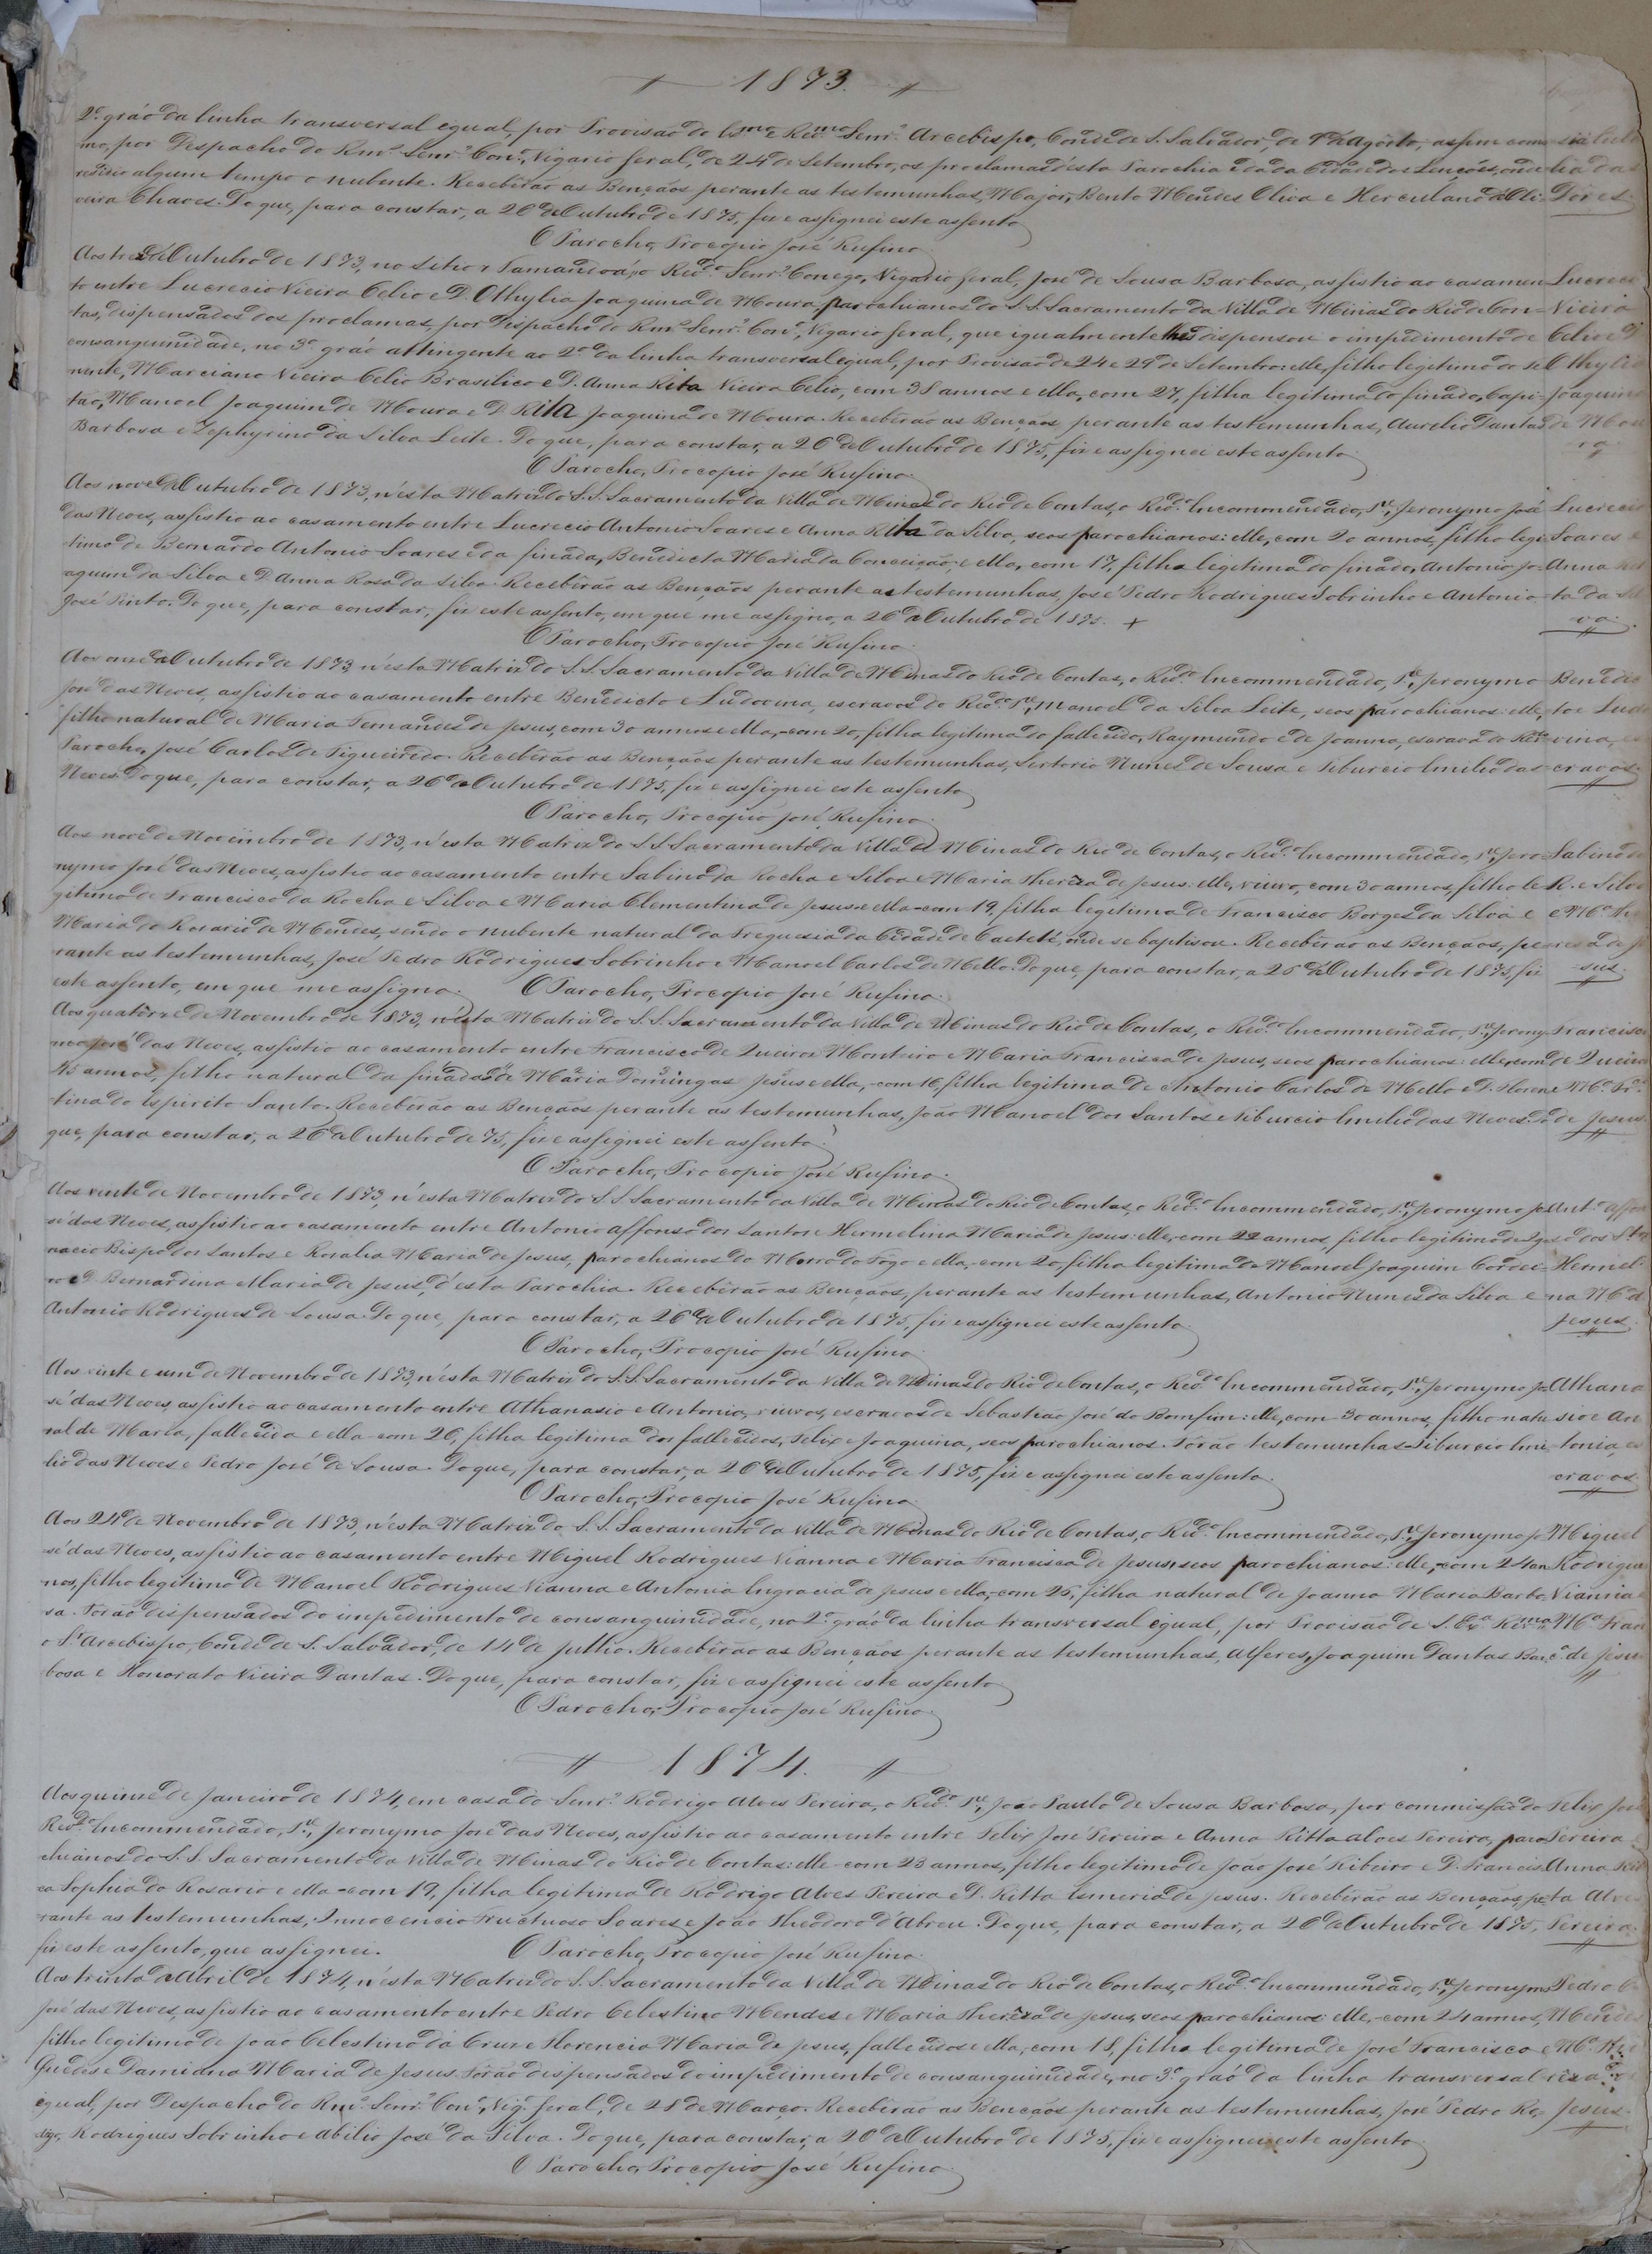 1873.
2º gráo da linha transversal egual, por Provisão do Exmo e Revmo Senrº Arcebispo, Conde de S. Salvador, de 1º d'Agosto, assim como
mo, por Despacho do Rmº Senrº Conº, Vigario Geral, de 24 de Setembro, os proclamas d'esta Parochia e da da Cidade dos Lençóes, onde
residio algum tempo o nubente. Receberão as Bençãos perante as testemunhas, Major, Bento Mendes Oliva e Herculano d'Oli-
veira Chaves. Do que, para constar, a 26 d'Outubro de 1875, fiz e assignei este assento.
Dores.
O Parocho, Procopio José Rufino.
Aos tres d'Outubro de 1873, no Sitio Tamanduá, o Revdº Senrº Conego, Vigario Geral, José de Sousa Barbosa, assistio ao casamen-
Lucrecio
to entre Lucrecio Vieira Celio e D. Othylia Joaquina de Moura, parochianos do S.S. Sacramento da Villa de Minas do Rio de Con-
Vieira
tas, dispensados dos proclamas, por Despacho do Rmº Senrº Conº, Vigario Geral, que igualmente lhes dispensou o impedimento de
Celio e D.
consanguinidade, no 3º gráo attingente ao 2º da linha transversal egual, por Provisão de 24 e 29 de Setembro: elle, filho legitimo do Te-
Othylia
nente, Marciano Vieira Celio Brasilico e D. Anna Rita Vieira Celio, com 38 annos e ella, com 27, filha legitima do finado, Capi-
Joaquina
tão, Manoel Joaquim de Moura e D. Rita Joaquina de Moura. Receberão as Bençãos perante as testemunhas, Aurelio Dantas
de Mou
Barbosa e Zephyrino da Silva Leite. Do que, para constar, a 26 d'Outubro de 1875, fiz e assignei este assento.
ra.
O Parocho, Procopio José Rufino.
Aos nove d'Outubro de 1873, n'esta Matriz do S.S. Sacramento da Villa de Minas do Rio de Contas, o Revdº Incommendado, Pe, Jeronymo José
Lucrecio
das Neves, assistio ao casamento entre Lucrecio Antonio Soares e Anna Rita da Silva, seos parochianos: elle, com 20 annos, filho legi-
Soares e
timo de Bernardo Antonio Soares e da finada, Benedicta Maria da Conceição e ella, com 17, filha legitima do finado, Antonio Jo-
Anna Ri
aquim da Silva e D. Anna Rosa da Silva. Receberão as Bençãos perante as testemunhas, José Pedro Rodrigues Sobrinho e Antonio
ta da Sil
José Pinto. Do que, para constar, fiz este assento, em que me assigno, a 26 d'Outubro de 1875. +
va.
O Parocho, Procopio José Rufino.
Aos onze d'Outubro de 1873, n'esta Matriz do S.S. Sacramento da Villa de Minas do Rio de Contas, o Revdº Incommendado, Pe, Jeronymo
Benedic
José das Neves, assistio ao casamento entre Benedicto e Ludovina, escravos do Revdo Pe, Manoel da Silva Leite, seos parochianos: elle,
to e Ludo
filho natural de Maria Fernandes de Jesus, com 30 annos e ella, com 20, filha legitima do fallecido, Raymundo e de Joanna, escrava do Revº
vina, es
Parocho, José Carlos de Figueirêdo. Receberão as Bençãos perante as testemunhas, Sertorio Nunes de Sousa e Tiburcio Emilio das
cravos.
Neves. Do que, para constar, a 26 d'Outubro de 1875, fiz e assignei este assento.
O Parocho, Procopio José Rufino.
Aos nove de Novembro de 1873, n'esta Matriz do S.S. Sacramento da Villa de Minas do Rio de Contas, o Revdº Incommendado, Pe, Jero-
Sabino da
nymo José das Neves, assistio ao casamento entre Sabino da Rocha e Silva e Maria Thereza de Jesus: elle, viuvo, com 30 annos, filho le-
R. e Silva
gitimo de Francisco da Rocha e Silva e Maria Clementina de Jesus e ella com 19, filha legitima de Francisco Borges da Silva e
e Mª The
Maria do Rosario de Mendes, sendo o nubente natural da Freguesia da Cidade de Caeteté, onde se baptisou. Receberão as Bençãos, pe-
resa de Je
rante as testemunhas, José Pedro Rodrigues Sobrinho e Manoel Carlos de Mello. Do que, para constar, a 26 d'Outubro de 1875, fiz
sus.
este assento, em que me assigno. O Parocho, Procopio José Rufino.
Aos quatorze de Novembro de 1873, n'esta Matriz do S.S. Sacramento da Villa de Minas do Rio de Contas, o Revdº Incommendado, Pe, Jerony-
Francisco
mo José das Neves, assistio ao casamento entre Francisco de Queiroz Monteiro e Maria Francisca de Jesus, seos parochianos: elle, com
de Queiroz
45 annos, filho natural da finada de Maria Domingas Jesus e ella, com 16, filha legitima de Antonio Carlos de Mello e D. Floren-
e Mª Frª
tina do Espirito Santo. Receberão as Bençãos perante as testemunhas, João Manoel dos Santos e Tiburcio Emilio das Neves. Do
de Jesus.
que, para constar, a 26 d'Outubro de 75, fiz e assignei este assento.
O Parocho, Procopio José Rufino.
Aos vinte de Novembro de 1873, n'esta Matriz do S.S. Sacramento da Villa de Minas do Rio de Contas, o Revdº Incommendado, Pe, Jeronymo Jo-
Antº Affon
sé das Neves, assistio ao casamento entre Antonio Affonso dos Santos e Hermelina Maria de Jesus: elle, com 22 annos, filho legitimo de Ig-
so dos Stos
nacio Bispo dos Santos e Rosalia Maria de Jesus, parochianos do Morro do Fogo e ella, com 20, filha legitima de Manoel Joaquim Cordei-
Hermeli
ro e D. Bernardina Maria de Jesus, d'esta Parochia. Receberão as Bençãos, perante as testemunhas, Antonio Nunes da Silva e
na Mª d
Antonio Rodrigues de Sousa. Do que, para constar, a 26 d'Outubro de 1875, fiz e assignei este assento.
Jesus.
O Parocho, Procopio José Rufino.
Aos vinte e um de Novembro de 1873, n'esta Matriz do S.S. Sacramento da Villa de Minas do Rio de Contas, o Revdo Incommendado, Pe, Jeronymo Jo-
Athana
sé das Neves, assistio ao casamento entre Athanasio e Antonia, viuvos, escravos de Sebastião José do Bomfim: elle, com 30 annos, filho natu-
sio e An
ral de Maria, fallecida e ella com 26, filha legitima dos fallecidos, Felix e Joaquina, seos parochianos. Fôrão testemunhas Tiburcio Emi-
tonia, es
lio das Neves e Pedro José de Sousa. Do que, para constar, a 26 d'Outubro de 1875, fiz e assignei este assento.
cravos.
O Parocho, Procopio José Rufino.
Aos 24 de Novembro de 1873, n'esta Matriz do S.S. Sacramento da Villa de Minas do Rio de Contas, o Revdº Incommendado, Pe, Jeronymo Jo-
Miguel
sé das Neves, assistio ao casamento entre Miguel Rodrigues Vianna e Maria Francisca de Jesus, seos parochianos: elle, com 24 an-
Rodrigues
nos, filho legitimo de Manoel Rodrigues Vianna e Antonia Engracia de Jesus e ella, com 25, filha natural de Joanna Maria Barbo-
Vianna e
sa. Forão dispensados do impedimento de consanguinidade, no 2º gráo da linha transversal egual, por Provisão de S. Exª Revma
Mª Fran
o Sr Arcebispo, Conde de S. Salvador, de 14 de Julho. Receberão as Bençãos perante as testemunhas, Alferes, Joaquim Dantas Bar-
cª de Jesus
bosa e Honorato Vieira Dantas. Do que, para constar, fiz e assignei este assento.
O Parocho, Procopio José Rufino.
1874.
Aos quinze de Janeiro de 1874, em casa do Senrº Rodrigo Alves Pereira, o Revdº Pe, João Paulo de Sousa Barbosa, por commissão do
Felix José
Revdº Incommendado, Pe, Jeronymo José das Neves, assistio ao casamento entre Felix José Pereira e Anna Ritta Alves Pereira, paro-
Pereira
chianos do S.S. Sacramento da Villa de Minas do Rio de Contas: elle com 23 annos, filho legitimo de João José Ribeiro e D. Francis-
Anna Rit
ca Sophia do Rosario e ella com 19, filha legitima de Rodrigo Alves Pereira e D. Ritta Ismeria de Jesus. Receberão as Bençãos, pe-
ta Alves
rante as testemunhas, Innocencio Fructuoso Soares e João Theodoro d'Abreu. Do que, para constar, a 26 d'Outubro de 1875,
Pereira.
fiz este assento, que assignei. O Parocho, Procopio José Rufino.
Aos trinta d'Abril de 1874, n'esta Matriz do S.S. Sacramento da Villa de Minas do Rio de Contas, o Revdo Incommendado, Pe, Jeronymo
Pedro C
José das Neves, assistio ao casamento entre Pedro Celestino Mendes e Maria Thereza de Jesus, seos parochianos: elle, com 24 annos,
Mendes
filho legitimo de João Celestino da Cruz e Florencia Maria de Jesus, fallecidos e ella, com 18, filha legitima de José Francisco
e Mª The
Guedes e Damiana Maria de Jesus. Forão dispensados do impedimento de consanguinidade, no 3º gráo da linha transversal
reza
egual, por Despacho do Rmº Senrº Conº, Vigº Geral, de 28 de Março. Receberão as Bençãos perante as testemunhas, José Pedro Ro,
Jesus.
digo, Rodrigues Sobrinho e Abilio José da Silva. Do que, para constar, a 26 d'Outubro de 1875, fiz e assignei este assento.
O Parocho, Procopio José Rufino.